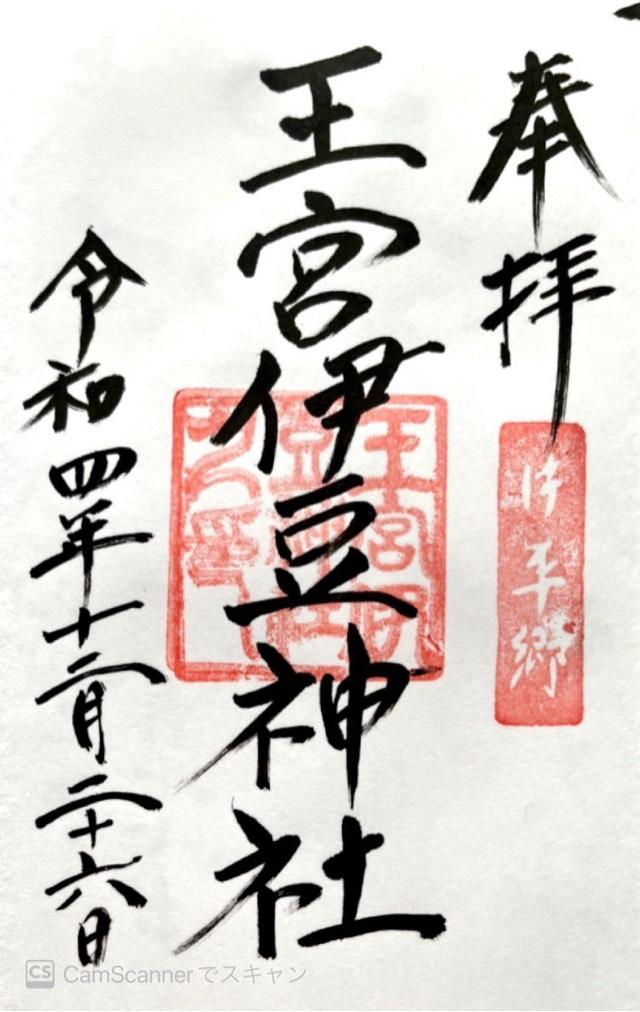 奉拝
伊平郷
王宮伊豆神社
令和四年十二月二十六日
CS CamScannerでスキャン